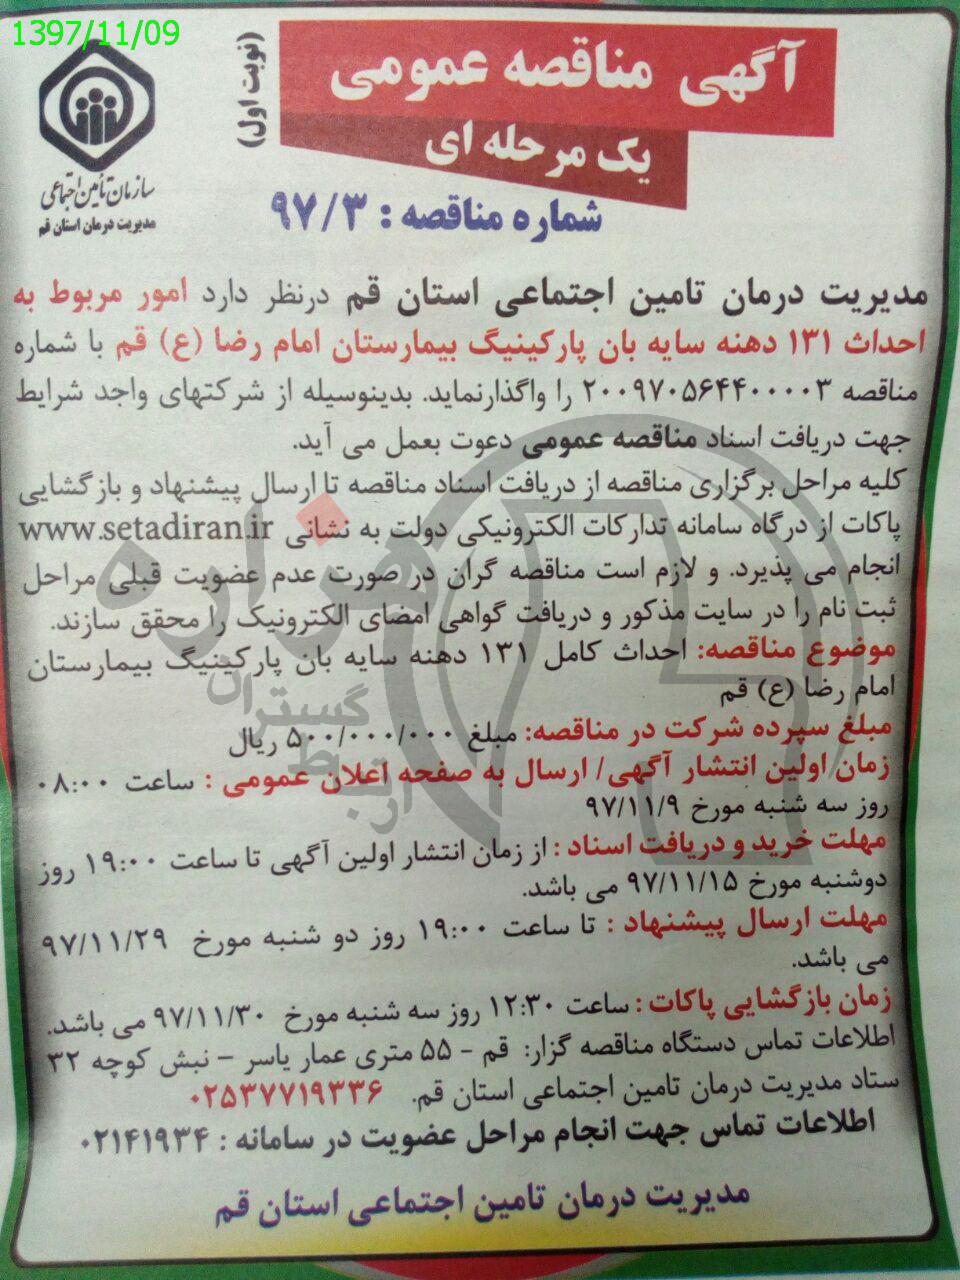 1397/11/09
آگهی مناقصه عمومی
یک مرحله ای
(نوبت اول)
سازمان تأمین اجتماعی
مدیریت درمان استان قم
شماره مناقصه : ۹۷/۳
مدیریت درمان تامین اجتماعی استان قم درنظر دارد امور مربوط به
احداث ۱۳۱ دهنه سایه بان پارکینیگ بیمارستان امام رضا (ع) قم با شماره
مناقصه ۲۰۰۹۷۰۵۶۴۴۰۰۰۰۳ را واگذارنماید. بدینوسیله از شرکتهای واجد شرایط
جهت دریافت اسناد مناقصه عمومی دعوت بعمل می آید.
کلیه مراحل برگزاری مناقصه از دریافت اسناد مناقصه تا ارسال پیشنهاد و بازگشایی
پاکات از درگاه سامانه تدارکات الکترونیکی دولت به نشانی www.setadiran.ir
انجام می پذیرد. و لازم است مناقصه گران در صورت عدم عضویت قبلی مراحل
ثبت نام را در سایت مذکور و دریافت گواهی امضای الکترونیک را محقق سازند.
موضوع مناقصه: احداث کامل ۱۳۱ دهنه سایه بان پارکینیگ بیمارستان
امام رضا (ع) قم
مبلغ سپرده شرکت در مناقصه: مبلغ ۵۰۰/۰۰۰/۰۰۰ ریال
زمان اولین انتشار آگهی/ ارسال به صفحه اعلان عمومی : ساعت ۰۸:۰۰
روز سه شنبه مورخ ۹۷/۱۱/۹
مهلت خرید و دریافت اسناد : از زمان انتشار اولین آگهی تا ساعت ۱۹:۰۰ روز
دوشنبه مورخ ۹۷/۱۱/۱۵ می باشد.
مهلت ارسال پیشنهاد : تا ساعت ۱۹:۰۰ روز دو شنبه مورخ ۹۷/۱۱/۲۹
می باشد.
زمان بازگشایی پاکات : ساعت ۱۲:۳۰ روز سه شنبه مورخ ۹۷/۱۱/۳۰ می باشد.
اطلاعات تماس دستگاه مناقصه گزار: قم - ۵۵ متری عمار یاسر – نبش کوچه ۳۲
ستاد مدیریت درمان تامین اجتماعی استان قم. ۰۲۵۳۷۷۱۹۳۳۶
اطلاعات تماس جهت انجام مراحل عضویت در سامانه : ۰۲۱۴۱۹۳۴
مدیریت درمان تامین اجتماعی استان قم
هزاره
گستران
ارتباط